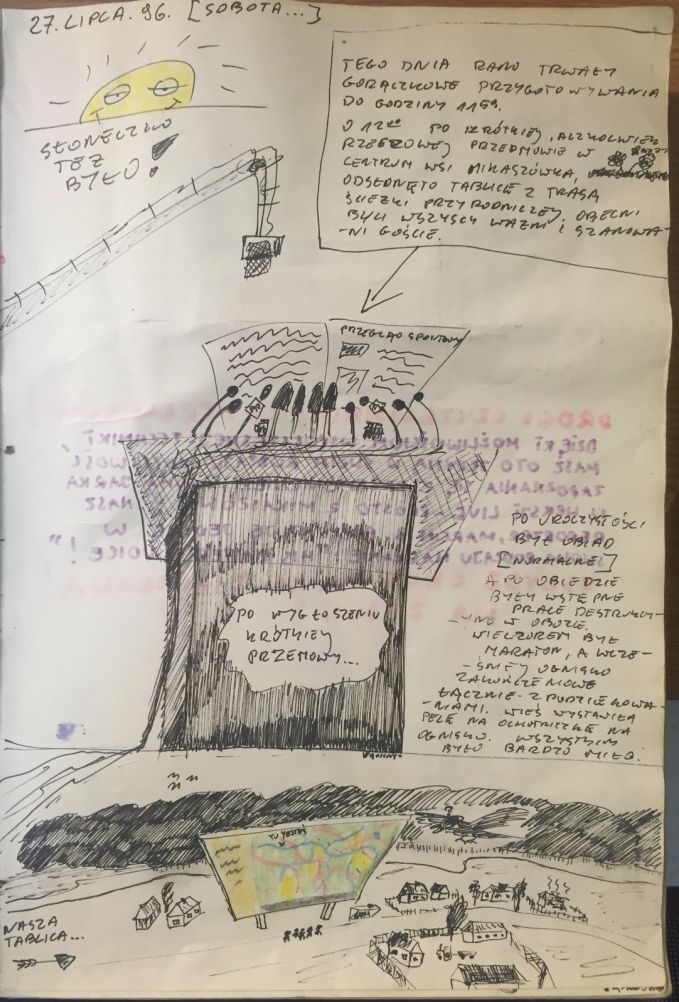 27. LIPCA. 96. [SOBOTA...]
SŁONECZKO
TEŻ
BYŁO!
TEGO DNIA RANO TRWAŁY
GORĄCZKOWE PRZYGOTOWYWANIA
DO GODZINY 11⁵⁹.
O 12⁰⁰ PO KRÓTKIEJ, ACZKOLWIEK
RZECZOWEJ PRZEDMOWIE W
CENTRUM WSI MIKASZÓWKA,
ODSŁONIĘTO TABLICE Z TRASĄ
ŚCIEŻKI PRZYRODNICZEJ. OBECNI
BYLI WSZYSCY WAŻNI I SZANOWA-
-NI GOŚCIE.
PRZEGLĄD SPORTOWY
PO WYGŁOSZENIU
KRÓTKIEJ
PRZEMOWY...
PO UROCZYSTOŚCI
BYŁ OBIAD
[NORMALNE]
A PO OBIEDZIE
BYŁY WSTĘPNE
PRACE DESTRUKCY-
-YJNE W OBOZIE.
WIECZOREM BYŁ
MARATON, A WCZE-
-ŚNIEJ OGNISKO
ZAKOŃCZENIOWE
ŁĄCZNIE Z PODZIĘKOWA-
-NIAMI. WIEŚ WYSTAWIŁA
NA OGNISKO. WSZYSTKIM
BYŁO BARDZO MIŁO.
TU JESTEŚ
NASZA
TABLICA...